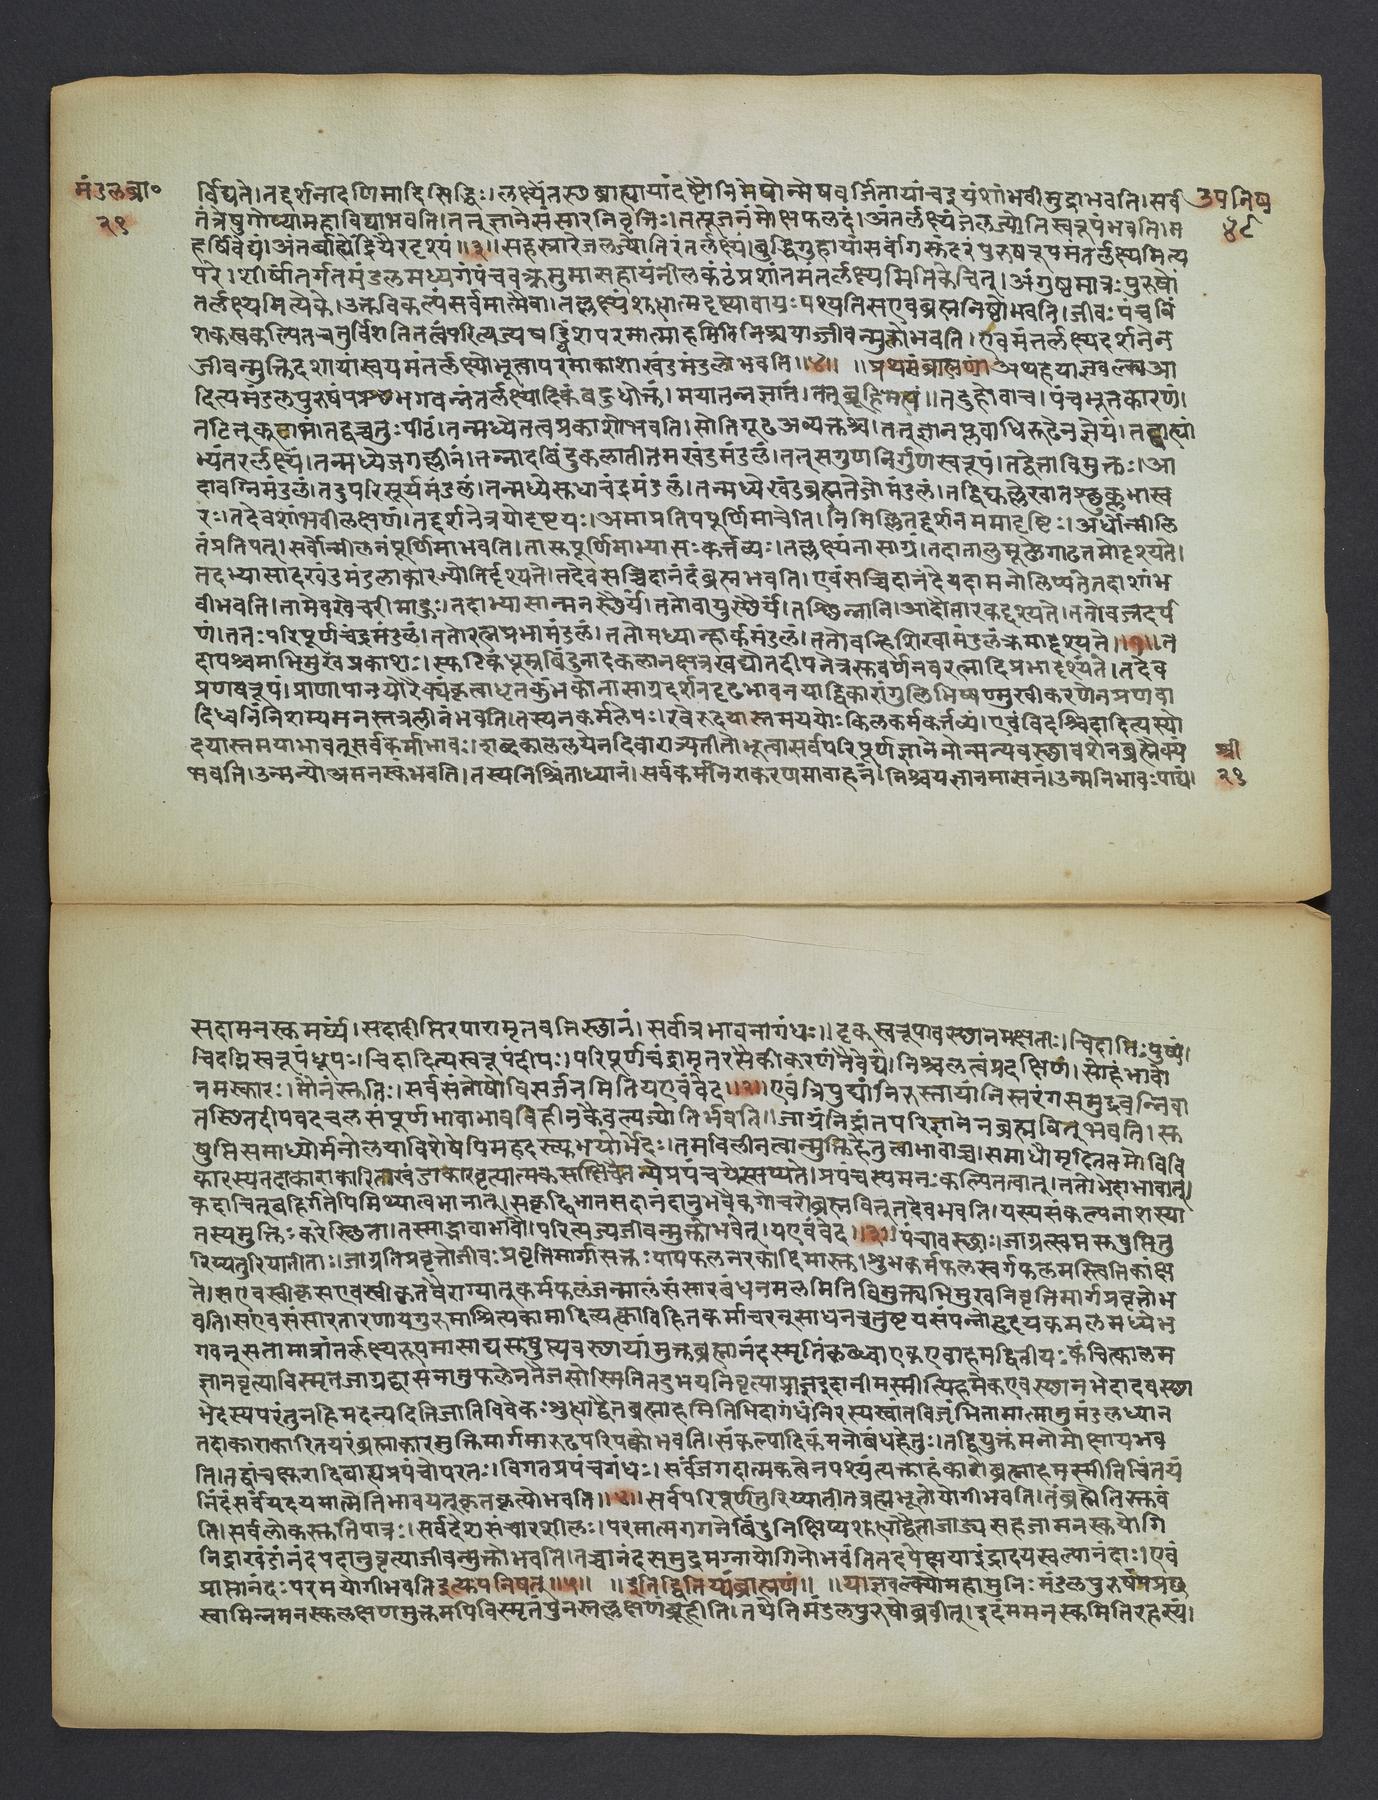 मंडलब्रा०
२९
उपनिष
४८
र्विद्यते।तद्दर्शनादणिमादिसिद्धिः।लक्ष्येंतस्छबाह्यायांदृष्टौनिमेषोन्मेषवर्जितायांचइयंशांभवीमुद्राभवति।सर्व
तंत्रेषुगोप्यामहाविद्याभवति।तत्नुज्ञानेसंसारनिवृत्तिः।तत्पूजनंमोक्षफलदं।अंतर्लक्ष्यंजलज्योतिस्वरूपंभवति।म
हर्षिवेद्यं।अंतर्बाह्येंद्रियैरदृश्यं॥३॥सहस्रारेजलज्योतिरंतर्लक्ष्यं।बुद्धिगुहायांसर्वांगसुंदरंपुरुषरूपमंतर्लक्ष्यमित्य
परे।शीर्षांतर्गतमंडलमध्यगंपंचवक्त्रमुमासहायंनीलकंठंप्रशांतमंतर्लक्ष्यमितिकेचित्।अंगुष्ठमात्रःपुरुषों
तर्लक्ष्यमित्येके।उक्तविकल्पंसर्वमात्मैव।तल्लक्ष्यंशुद्धात्मदृष्ट्यावायःपश्यतिसएवब्रह्मनिष्ठोभवति।जीवःपंचविं
शकःस्वकल्पितचतुर्विंशतितत्वंपरित्यज्यषड्विंशपरमात्माहमितिनिश्चयाज्जीवन्मुक्तोभवति।एवमंतर्लक्ष्यदर्शनेन
जीवन्मुक्तिदशायांस्वयमंतर्लक्ष्योभूत्वापरमाकाशाखंडमंडलोभवति॥४॥ ॥प्रथमंब्राह्मणं।अथहयाज्ञवल्क्यआ
दित्यमंडलपुरुषंपप्रच्छभगवन्नंतर्लक्ष्यादिकंबहुधोक्तं।मयातन्नज्ञातं।तत्ब्रूहिमह्यं॥तदुहोवाच।पंचभूतकारणं।
तटित्कूटाभं।तद्वच्चतुःपीठं।तन्मध्येतत्वप्रकाशोभवति।सोतिगूढअव्यक्तश्च।तत्ज्ञानप्लवाधिरूढेनज्ञेयं।तद्बाह्या
भ्यंतरर्लक्ष्यं।तन्मध्येजगल्लीनं।तन्नादबिंदुकलातीतमखंडमंडलं।तत्सगुणनिर्गुणस्वरूपं।तद्वेत्ताविमुक्तः।आ
दावग्निमंडलं।तदुपरिसूर्यमंडलं।तन्मध्येसुधाचंद्रमंडलं।तन्मध्येखंडब्रह्मतेजोमंडलं।तद्विद्युल्लेखावच्छुक्लभास्व
रं।तदेवशांभवीलक्षणं।तद्दर्शनेत्रयोदृष्टयः।अमाप्रतिपपूर्णिमाचेति।निमिलितदर्शनममादृष्टिः।अर्धोन्मीलि
तंप्रतिपत्।सर्वोन्मीलनंपूर्णिमाभवति।तासुपूर्णिमाभ्यासःकर्त्तव्यः।तल्लक्ष्यंनासाग्रं।तदातालुमूलेगाढतमोदृश्यते।
तदभ्यासादखंडमंडलाकारज्योतिर्दृश्यते।तदेवसच्चिदानंदंब्रह्मभवति।एवंसच्चिदानंदेयदामनोलिप्यतेतदाशांभ
वीभवति।तामेवखेचरीमाहुः।तदाभ्यासान्मनस्थैर्यं।ततोवायुस्थैर्यं।तच्छिन्नानि।आदौतारकदृश्यते।ततोवज्रदर्प
णं।ततःपरिपूर्णचंद्रमंडलं।ततोरत्नप्रभामंडलं।ततोमध्यान्हार्कमंडलं।ततोवन्हिशिखामंडलंक्रमादृश्यते॥१॥त
दापश्चिमाभिमुखंप्रकाशः।स्फटिकधूम्रबिंदुनादकलानक्षत्रखद्योतदीपनेत्रसुवर्णनवरत्नादिप्रभादृश्यंते।तदेव
प्रणवरूपं।प्राणापानयोरैक्यंकृत्वाधृतकुंभकोनासाग्रदर्शनदृढभावनयाद्विकारांगुलिभिष्षण्मुखीकरणेनप्रणवा
दिध्वनिंनिशम्यमनस्तत्रलीनंभवति।तस्यनकर्मलेपः।रवेरुदयास्तमययोःकिलकर्मकर्त्तव्यं।एवंविदश्चिदादित्यस्यो
दयास्तमयाभावतुसर्वकर्माभावः।शब्दकाललयेनदिवारात्र्यतीतोभूत्वासर्वपरिपूर्णज्ञानेनोन्मन्यवस्छावशेनब्रह्मैक्यं
भवति।उन्मन्योअमनस्कंभवति।तस्यनिश्चिंताध्यानं।सर्वकर्मनिराकरणमावाहनं।निश्चयज्ञानमासनं।उन्मनिभावःपाद्यं।
श्री
२९
सदामनस्कमर्घ्यं।सदादीप्तिरपारामृतवृत्तिस्छानं।सर्वात्रभावनागंधः।दृक्स्वरूपावस्छानमक्षताः।चिदाप्तिःपुष्पं।
चिदग्निस्वरूपंधूपः।चिदादित्यस्वरूपंदीपः।परिपूर्णचंद्रामृतरसैकीकरणंनैवेद्यं।निश्चलत्वंप्रदक्षिणं।सोहंभावो
नमस्कारः।मौनंस्तुतिः।सर्वसंतोषोविसर्जनमितियएवंवेद॥२॥एवंत्रिपुट्यांनिरस्तायांनिस्तरंगसमुद्रवन्निवा
तस्छितदीपवदचलसंपूर्णभावाभावविहीनकैवल्यज्योतिर्भवति।जाग्रंनिद्रांतपरिज्ञानेनब्रह्मवित्भवति।सु
षुप्तिसमाध्योर्मनोलयाविशेषेपिमहदस्त्युभयोर्भेदः।तमविलीनत्वान्मुक्तिहेतुत्वाभावाच्च।समाधौमृदिततमोविवि
कारस्यतदाकाराकारिताखंडाकारवृत्यात्मकसाक्षिचैतन्येप्रपंचयेस्सप्यते।प्रपंचस्यमनःकल्पितत्वात्।ततोभेदाभावात्।
कदाचित्बहिर्गतेपिमिथ्यात्वभानात्।सकृद्विभातसदानंदानुभवैकगोचरोब्रह्मवित्तदेवभवति।यस्यसंकल्पनाशस्या
तस्यमुक्तिःकरेस्छिता।तस्माद्भावाभावौ।परित्यज्यजीवन्मुक्तोभवेत्।यएवंवेद॥३॥पंचावस्छाः।जाग्रत्स्वप्नसुषुप्तितु
रिय्यतुरियातीताः।जाग्रतिप्रवृत्तोजीवःप्रवृत्तिमार्गासक्तःपापफलनरकादिमास्तु।शुभकर्मफलस्वर्गफलमस्त्वितिकांक्ष
ते।सएवस्वीकृसएवस्वीकृतवैराग्यात्कर्मफलंजन्मालंसंसारबंधनमलमितिविमुक्त्यभिमुखनिवृत्तिमार्गप्रवृत्तोभ
वति।सएवसंसारतारणायगुरुमाश्रित्यकामादित्यत्क्वाविहितकर्माचरन्साधनचतुष्टयसंपन्नोहृदयकमलमध्येभ
गवत्सत्तामात्रांतर्लक्ष्यरूपमासाद्यसुषुप्त्यवस्छायांमुक्तब्रह्मानंदस्मृतिंलब्ध्वाएकएवाहमद्वितीयःकंचित्कालम
ज्ञानवृत्याविस्मृतजाग्रद्वासनानुफलेनतैजसोस्मिनितदुभयनिवृत्याप्राज्ञइदानीमस्मीत्यहमेकएवस्छानभेदादवस्छा
भेदस्यपरंतुनहिमदन्यदितिजातिविवेकःशुद्धाद्वैतब्रह्माहमितिभिदागंधंनिरस्यस्वांतर्विजृंभितामात्मानुमंडलध्यान
तदाकाराकारितपरंब्रह्माकारमुक्तिमार्गमारूढपरिपक्वोभवति।संकल्पादिकंमनोबंधहेतुः।तद्वियुक्तंमनोमोक्षायभव
ति।तद्वांचक्षुरादिबाह्यप्रपंचोपरतः।विगतप्रपंचगंधः।सर्वजगदात्मकत्वेनपश्यंत्यक्ताहंकारोब्रह्माहमस्मीतिचिंतयं
निदंसर्वंयदयमात्मेतिभावयत्कृतकृत्योभवति॥४॥सर्वपरिपूर्णतुरिय्यातीतब्रह्मभूतोयोगीभवति।तंब्रह्मेतिस्तुवं
ति।सर्वलोकस्तुतिपात्रः।सर्वदेशसंचारशीलः।परमात्मगगनेबिंदुनिक्षिप्यशुद्धाद्वैताजाड्यसहजामनस्कयोगि
निद्राखंडानंदपदानुवृत्याजीवन्मुक्तोभवति।तच्चानंदसमुद्रमग्नायोगिनोभवंतितदपेक्षयाइंद्रादयस्वल्पानंदाः।एवं
प्राप्तानंदःपरमयोगीभवतिइत्युपनिषत्॥५॥ ॥इतिद्वितियंब्राह्मणं॥ ॥याज्ञवल्क्योमहामुनिःमंडलपुरुषंपप्रछ
स्वामिन्नमनस्कलक्षणमुक्तमपिविस्मृतंपुनस्तल्लक्षणंब्रूहीति।तथेतिमंडलपुरुषोब्रवीत्।इदंममनस्कमितिरहस्यं।